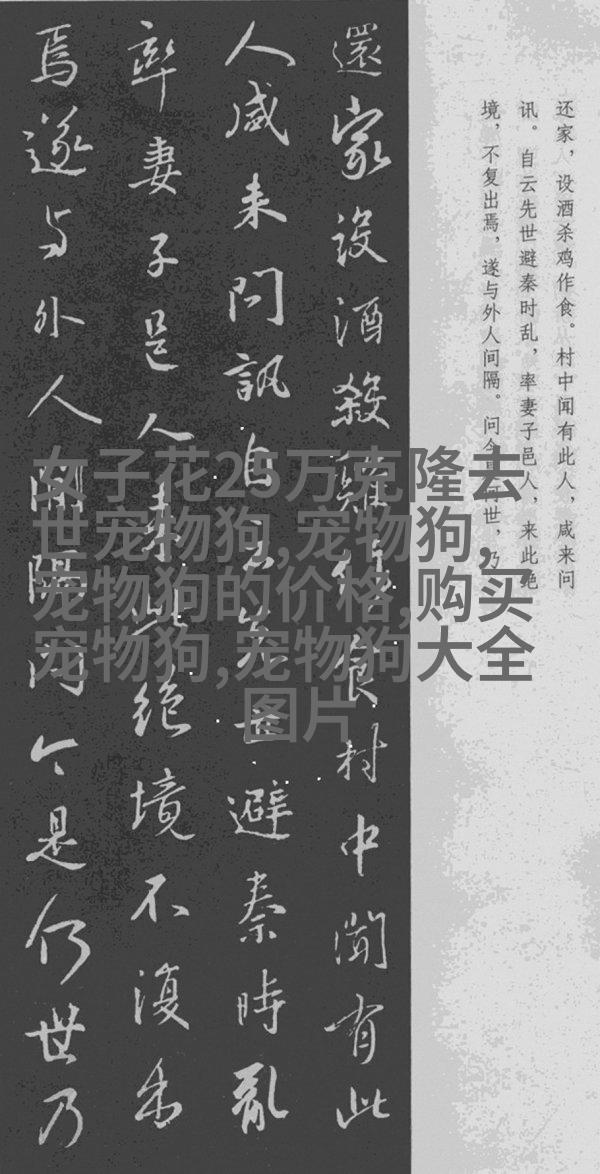 还家，设酒杀鸡作食。村中闻有此人，咸来问
讯。自云先世避秦时乱，率妻子邑人，来此绝
境，不复出焉，遂与外人间隔。问今是何世，乃
還家設酒殺雞作食村中聞有此
人咸来問訊自云先世避秦時亂
率妻子邑人来此絶境不復出
焉遂与外人間隔問今是何世乃
女子花25万克隆去
世宠物狗,宠物狗,
宠物狗的价格,购买
宠物狗,宠物狗大全
图片